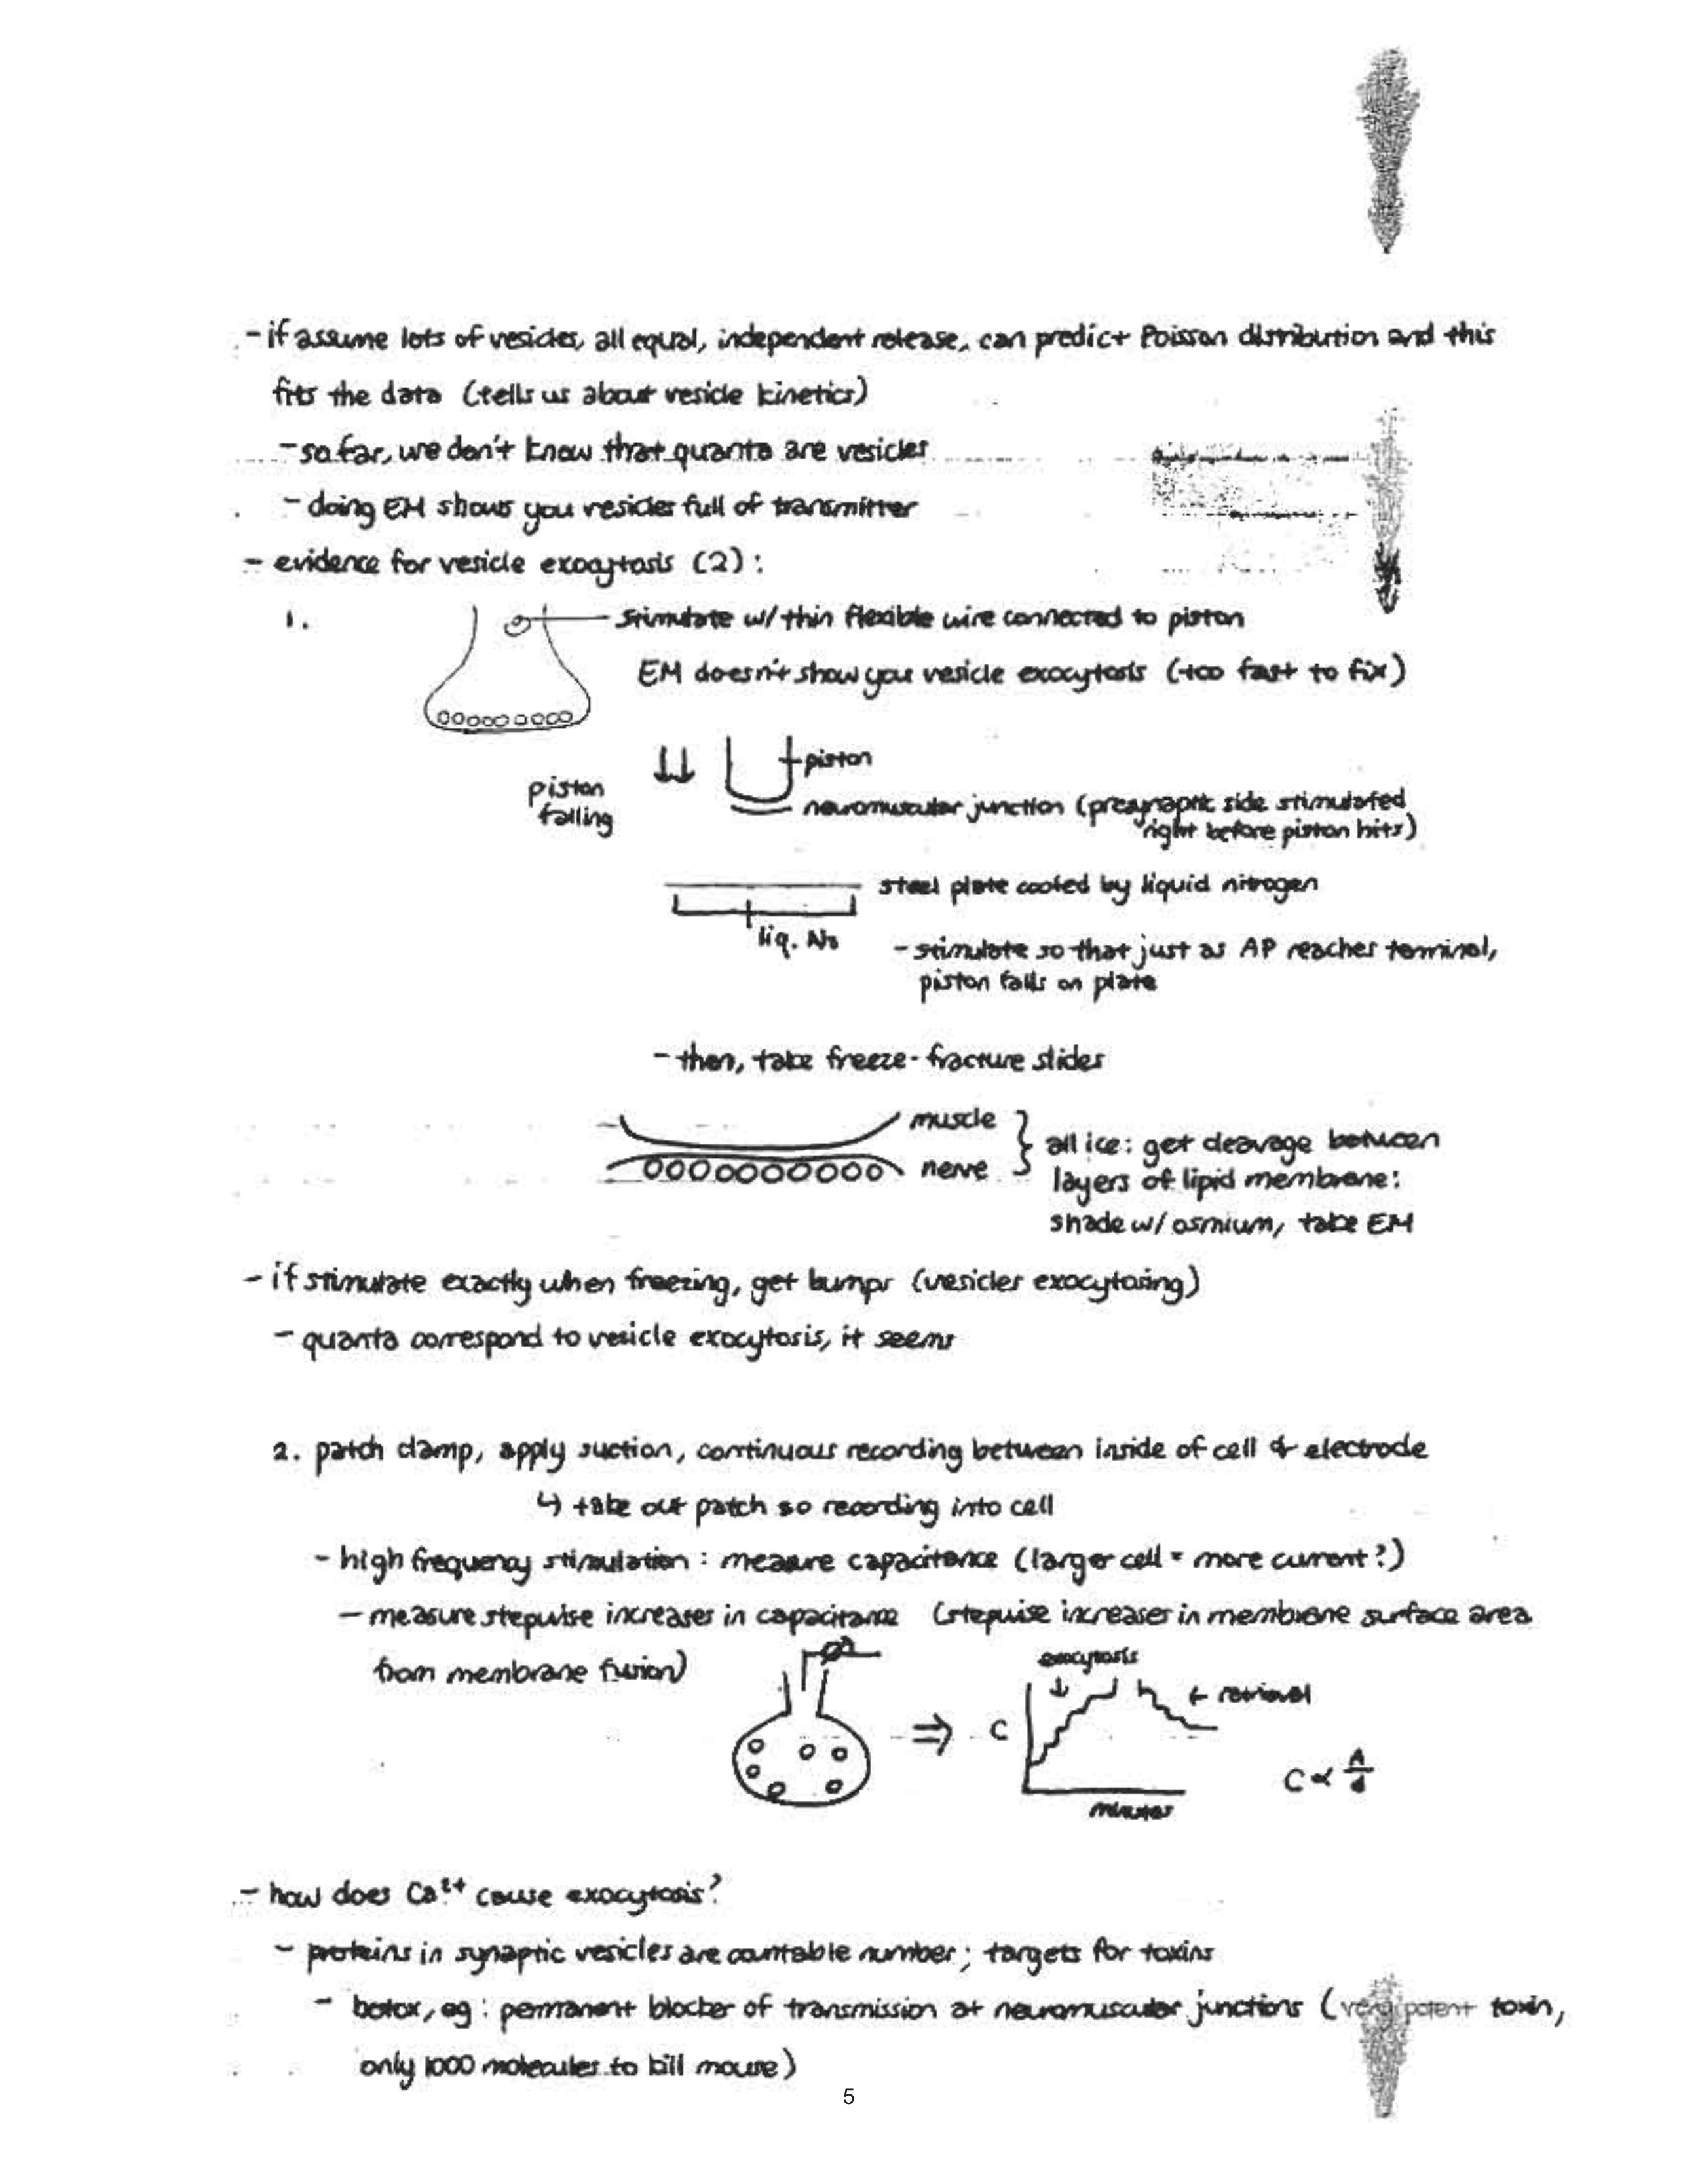 - if assume lots of vesicles, all equal, independent release, can predict Poisson distribution and this
fits the data (tells us about vesicle kinetics)
- so far, we don't know that quanta are vesicles
- doing EM shows you vesicles full of transmitter
- evidence for vesicle exocytosis (2):
1.
stimulate w/ thin flexible wire connected to piston
EM doesn't show you vesicle exocytosis (too fast to fix)
piston
piston
falling
neuromuscular junction (presynaptic side stimulated
right before piston hits)
steel plate cooled by liquid nitrogen
liq. N₂
- stimulate so that just as AP reaches terminal,
piston falls on plate
- then, take freeze-fracture slides
muscle
nerve
all ice: get cleavage between
layers of lipid membrane:
shade w/ osmium, take EM
- if stimulate exactly when freezing, get bumps (vesicles exocytosing)
- quanta correspond to vesicle exocytosis, it seems
2. patch clamp, apply suction, continuous recording between inside of cell & electrode
↳ take out patch so recording into cell
- high frequency stimulation: measure capacitance (larger cell = more current?)
- measure stepwise increases in capacitance (stepwise increases in membrane surface area
from membrane fusion)
exocytosis
↓
← retrieval
⇒ C
minutes
C ∝ A/d
- how does Ca²⁺ cause exocytosis?
- proteins in synaptic vesicles are countable number; targets for toxins
- botox, eg: permanent blocker of transmission at neuromuscular junctions (very potent toxin,
only 1000 molecules to kill mouse)
5